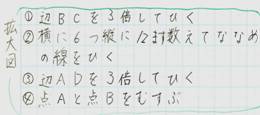 拡大図
①辺BCを3倍してひく
②横に6つ縦に12ます数えてななめ
の線をひく
③辺ADを3倍してひく
④点Aと点Bをむすぶ